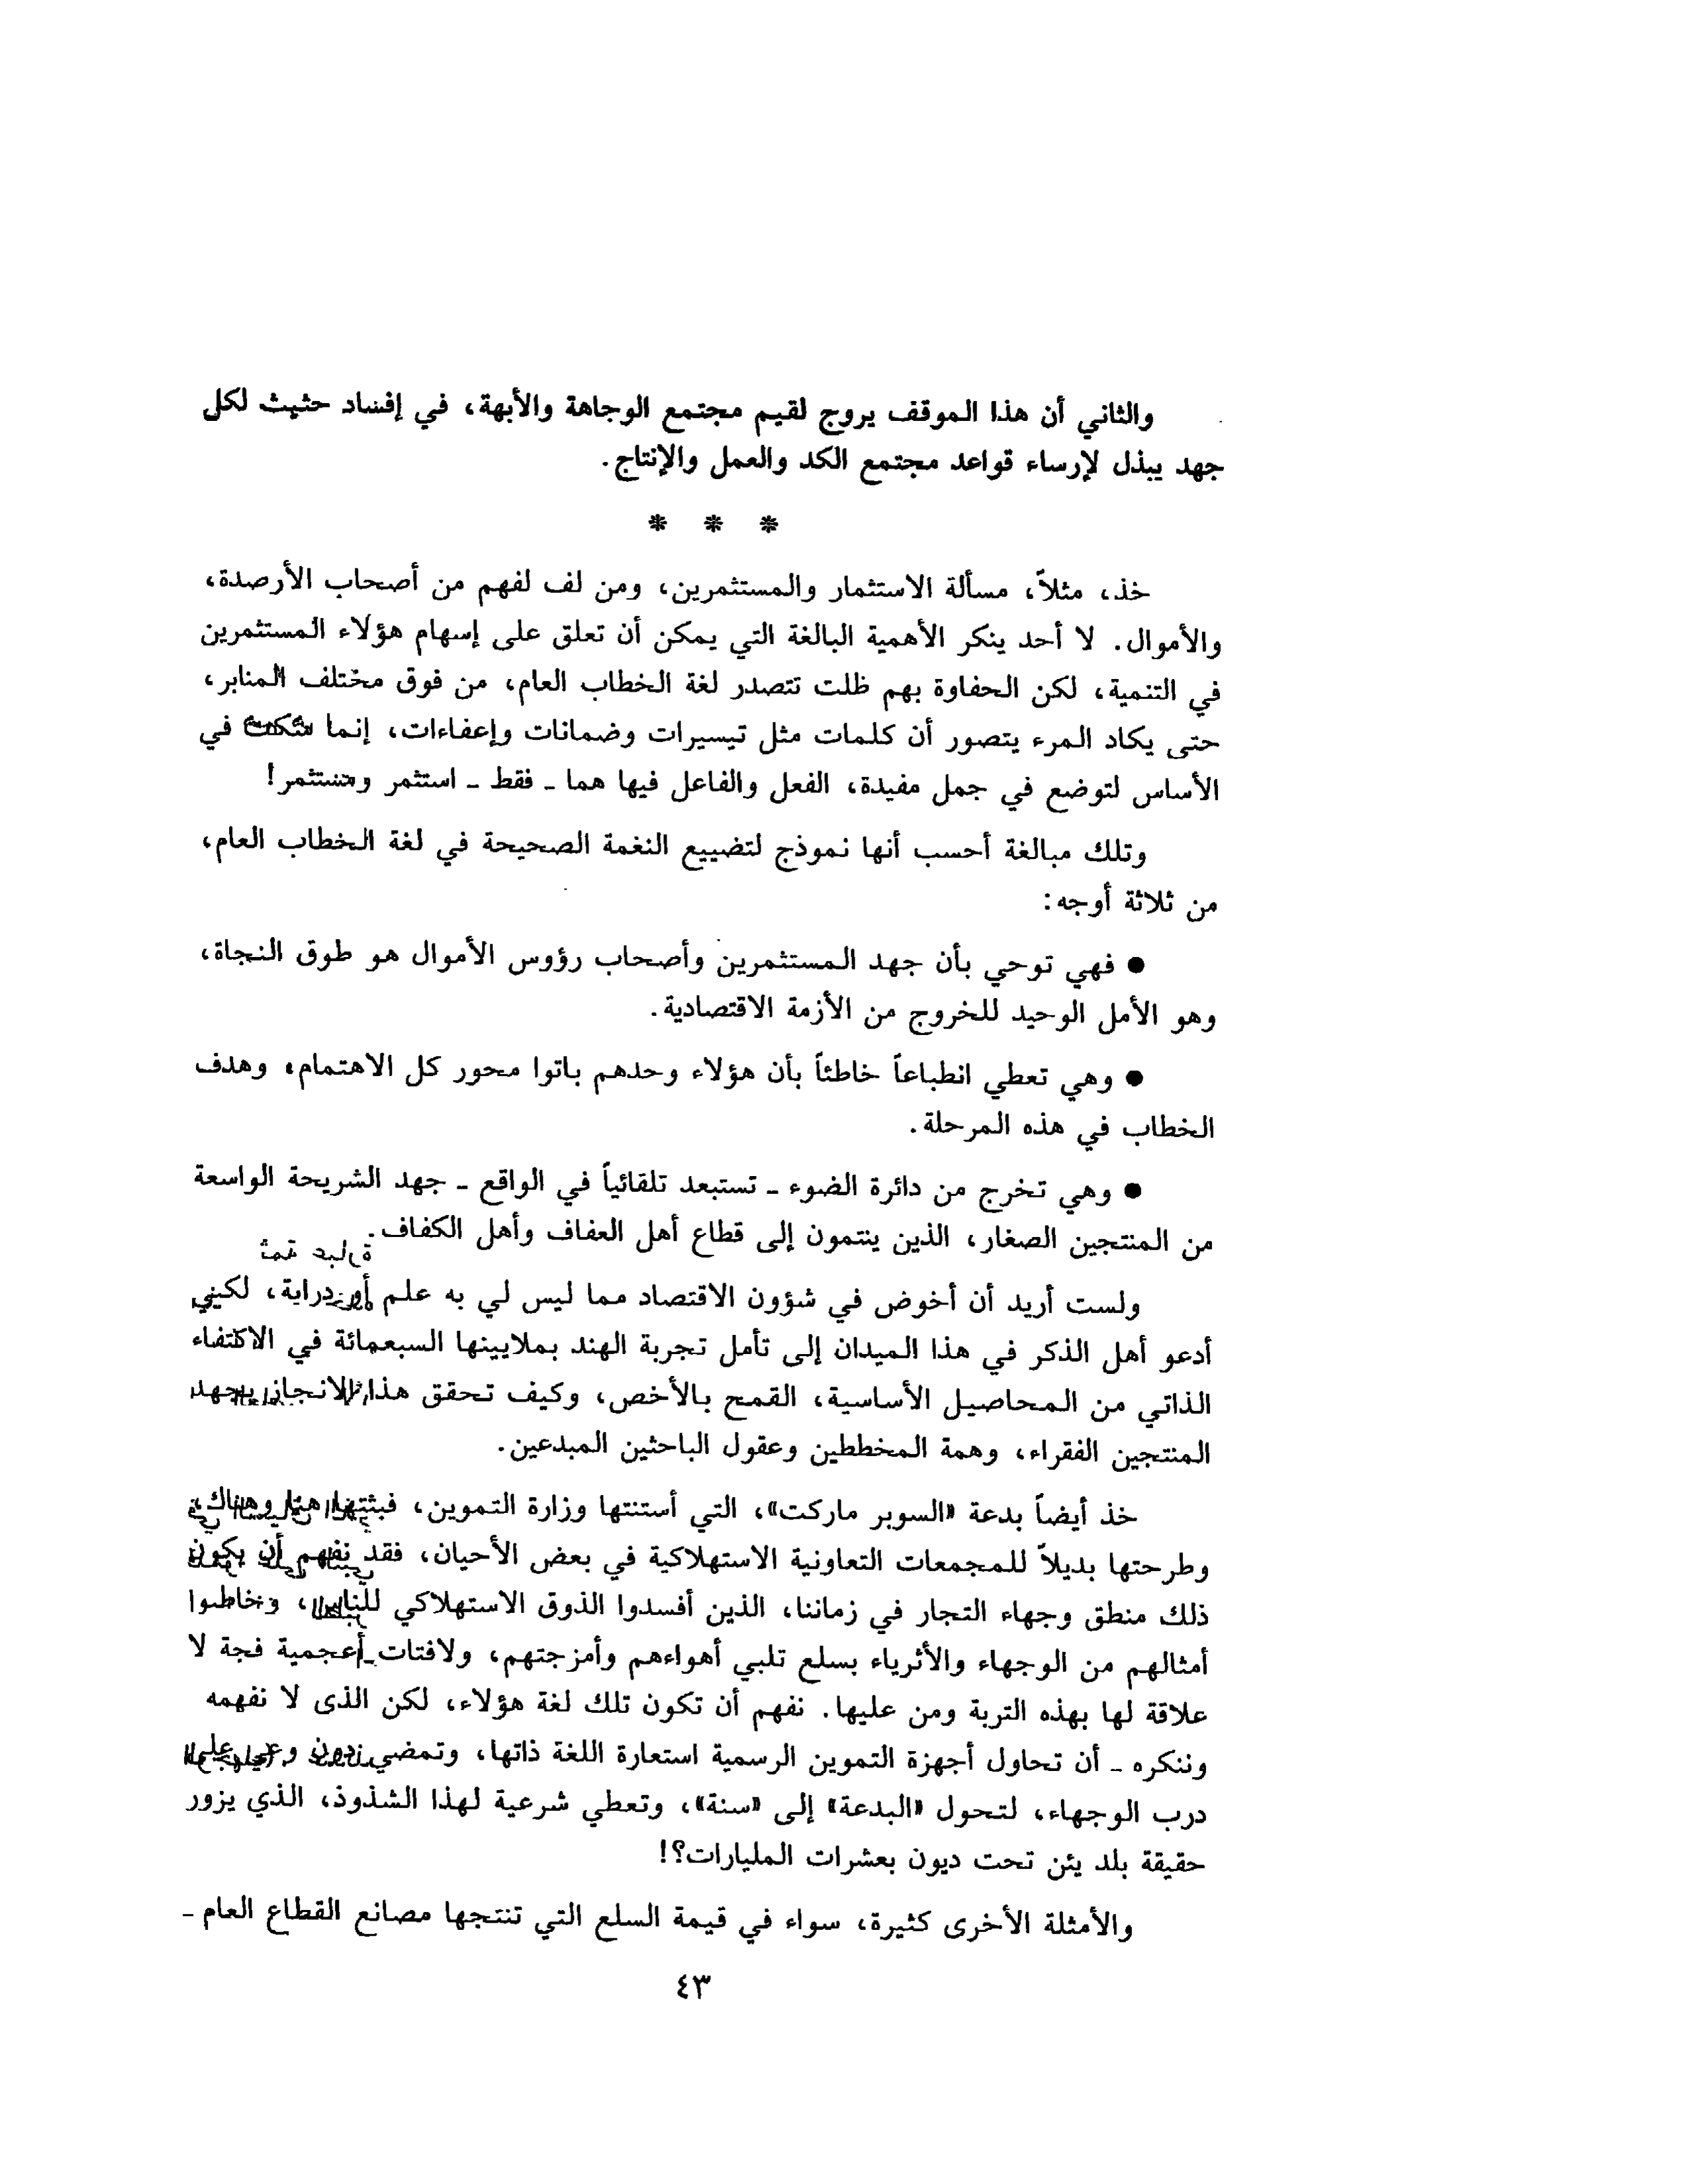 والثاني أن هذا الموقف يروج لقيم مجتمع الوجاهة والأبهة، في إفساد حثيث لكل
جهد يبذل لإرساء قواعد مجتمع الكد والعمل والإنتاج.
* * *
خذ، مثلاً، مسألة الاستثمار والمستثمرين، ومن لف لفهم من أصحاب الأرصدة،
والأموال. لا أحد ينكر الأهمية البالغة التي يمكن أن تعلق على إسهام هؤلاء المستثمرين
في التنمية، لكن الحفاوة بهم ظلت تتصدر لغة الخطاب العام، من فوق مختلف المنابر،
حتى يكاد المرء يتصور أن كلمات مثل تيسيرات وضمانات وإعفاءات، إنما في
الأساس لتوضع في جمل مفيدة، الفعل والفاعل فيها هما ـ فقط ـ استثمر ومستثمر!
وتلك مبالغة أحسب أنها نموذج لتضييع النغمة الصحيحة في لغة الخطاب العام،
من ثلاثة أوجه:
● فهي توحي بأن جهد المستثمرين وأصحاب رؤوس الأموال هو طوق النجاة،
وهو الأمل الوحيد للخروج من الأزمة الاقتصادية.
● وهي تعطي انطباعاً خاطئاً بأن هؤلاء وحدهم باتوا محور كل الاهتمام، وهدف
الخطاب في هذه المرحلة.
● وهي تخرج من دائرة الضوء ـ تستبعد تلقائياً في الواقع ـ جهد الشريحة الواسعة
من المنتجين الصغار، الذين ينتمون إلى قطاع أهل العفاف وأهل الكفاف.
ولست أريد أن أخوض في شؤون الاقتصاد مما ليس لي به علم أو دراية، لكني
أدعو أهل الذكر في هذا الميدان إلى تأمل تجربة الهند بملايينها السبعمائة في الاكتفاء
الذاتي من المحاصيل الأساسية، القمح بالأخص، وكيف تحقق هذا الانجاز بجهد
المنتجين الفقراء، وهمة المخططين وعقول الباحثين المبدعين.
خذ أيضاً بدعة «السوبر ماركت»، التي أستنتها وزارة التموين، فبثتها هنا وهناك،
وطرحتها بديلاً للمجمعات التعاونية الاستهلاكية في بعض الأحيان، فقد نفهم أن يكون
ذلك منطق وجهاء التجار في زماننا، الذين أفسدوا الذوق الاستهلاكي للناس، وخاطبوا
أمثالهم من الوجهاء والأثرياء بسلع تلبي أهواءهم وأمزجتهم، ولافتات أعجمية فجة لا
علاقة لها بهذه التربة ومن عليها. نفهم أن تكون تلك لغة هؤلاء، لكن الذى لا نفهمه
وننكره ـ أن تحاول أجهزة التموين الرسمية استعارة اللغة ذاتها، وتمضي دون وعي على
درب الوجهاء، لتحول «البدعة» إلى «سنة»، وتعطي شرعية لهذا الشذوذ، الذي يزور
حقيقة بلد يئن تحت ديون بعشرات المليارات؟!
والأمثلة الأخرى كثيرة، سواء في قيمة السلع التي تنتجها مصانع القطاع العام ـ
٤٣